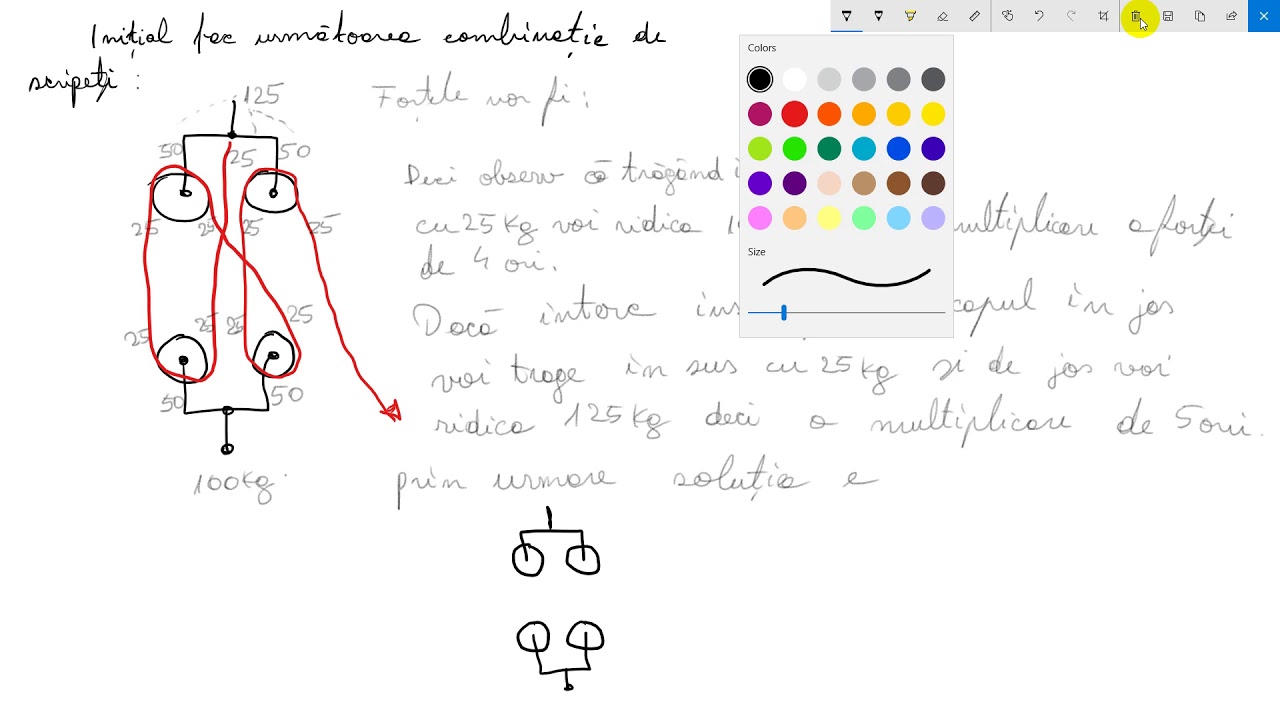 Inițial fac următoarea combinație de
scripeți :
125
Forțele vor fi :
50 25 50
Deci observ că trăgând
25 25 25 25
cu 25 kg voi ridica
multiplicare a forței
de 4 ori.
25 25 25 25
Dacă întorc
capul în jos
voi trage în sus cu 25 kg și de jos voi
50 50
ridica 125 kg deci o multiplicare de 5 ori.
100 kg.
prin urmare soluția e
Colors
Size